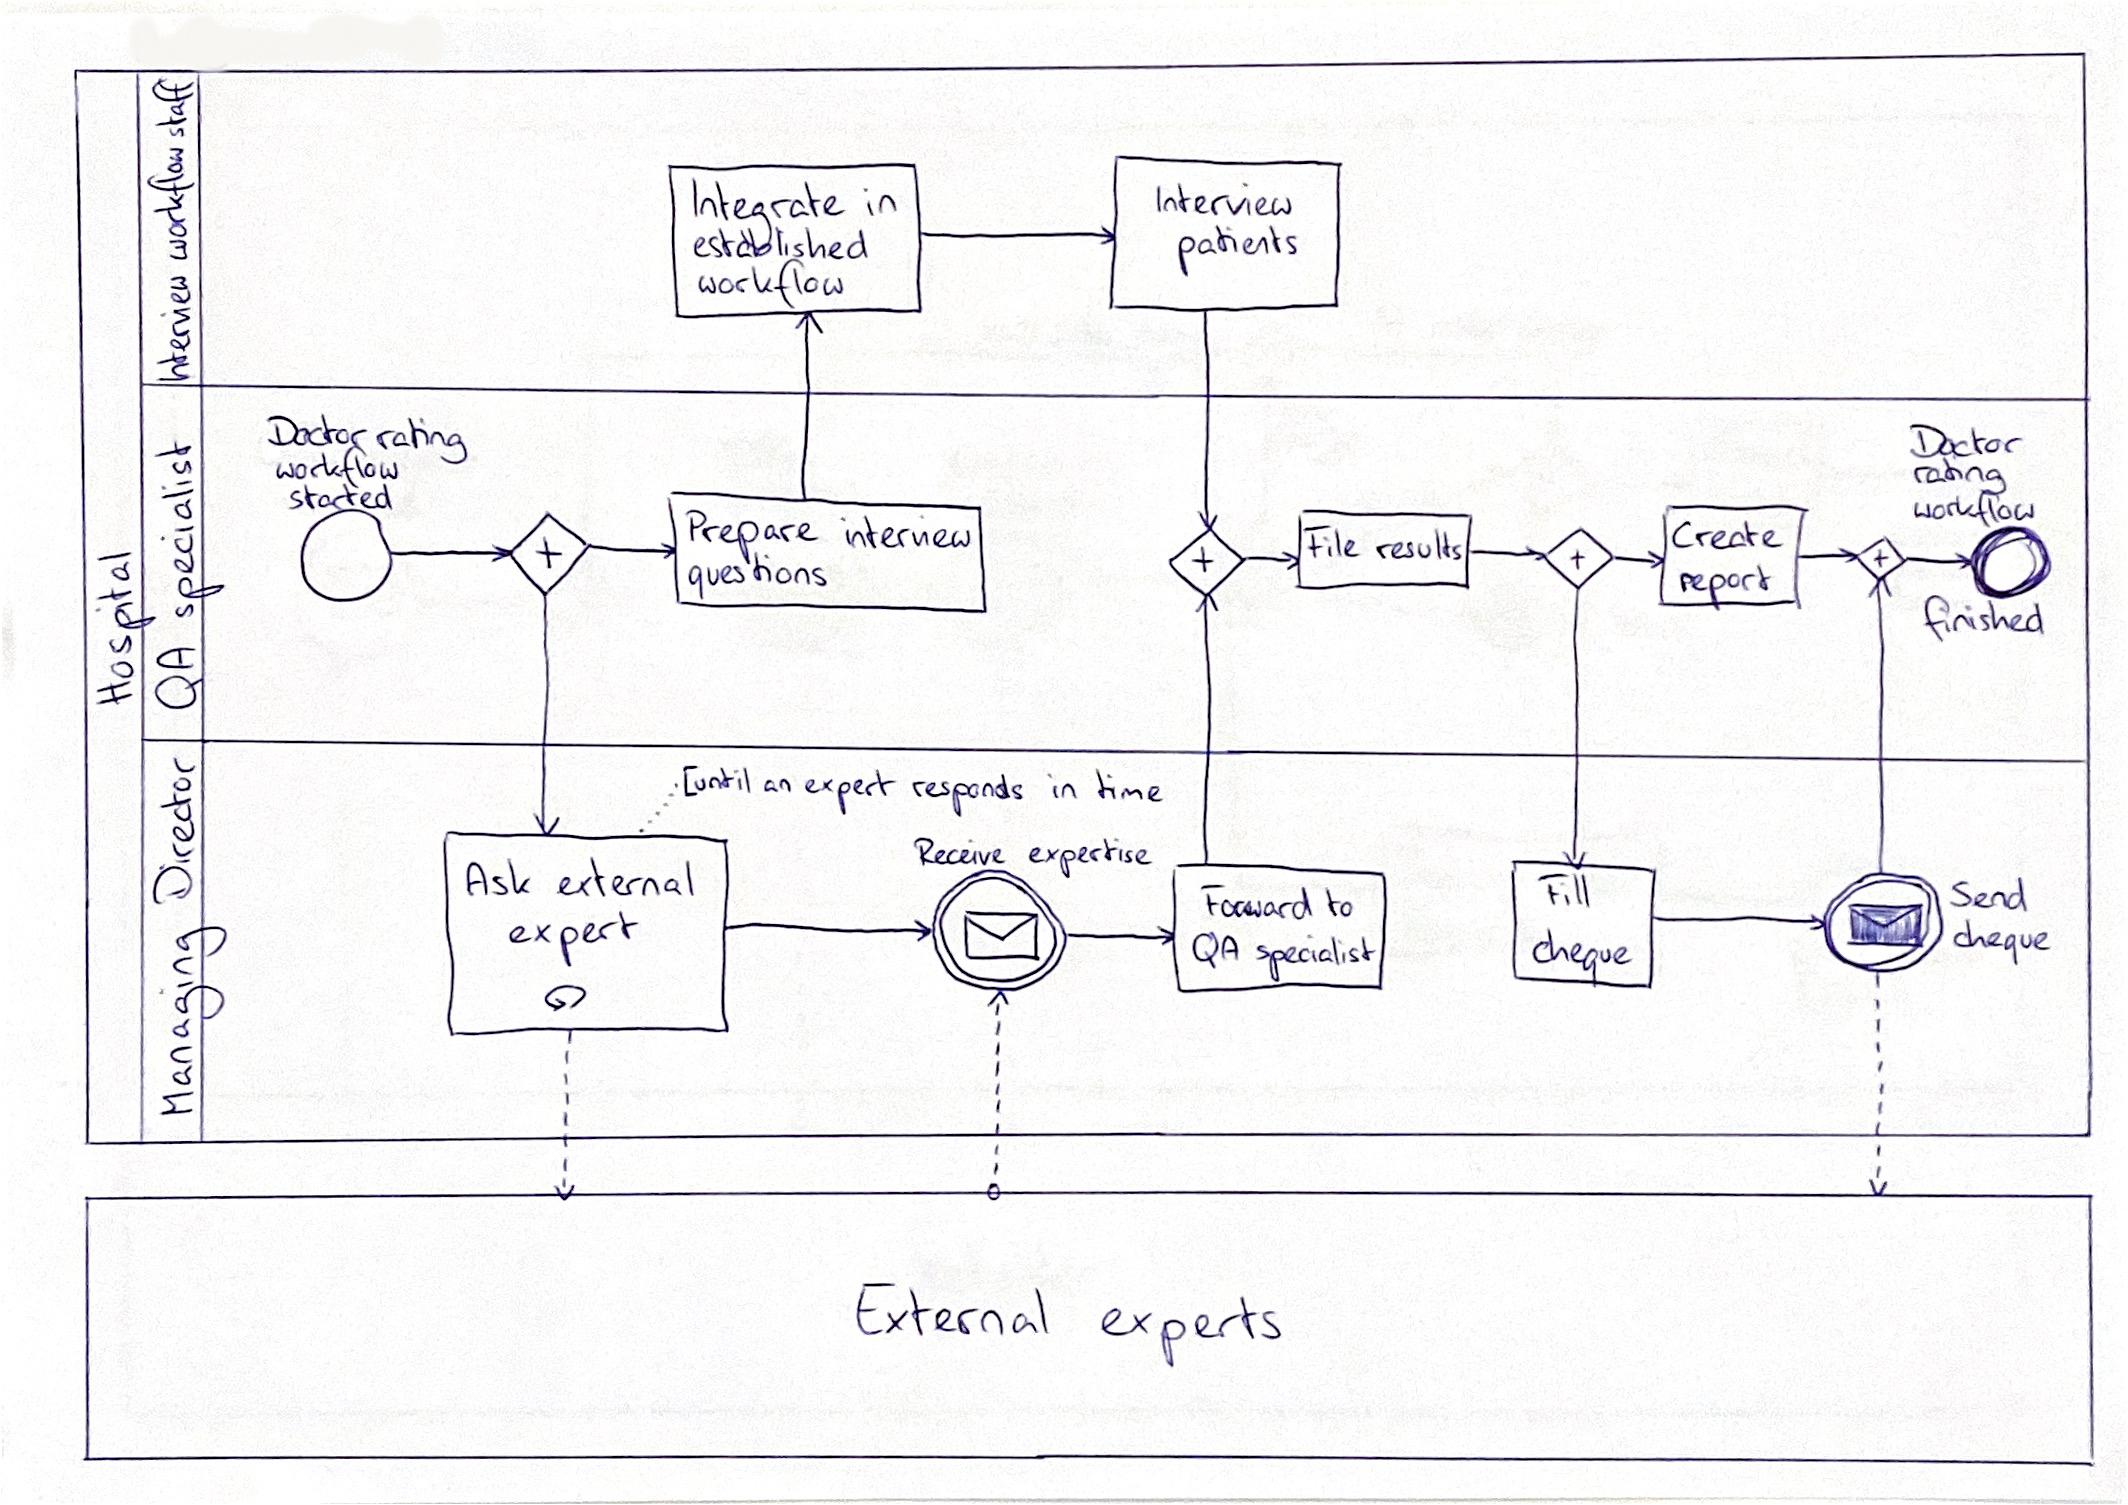 Hospital
Interview workflow staff
Integrate in
established
workflow
Interview
patients
QA specialist
Doctor rating
workflow
started
+
Prepare interview
questions
+
File results
+
Create
report
+
Doctor
rating
workflow
finished
Managing Director
until an expert responds in time
Ask external
expert
Receive expertise
Forward to
QA specialist
Fill
cheque
Send
cheque
External experts